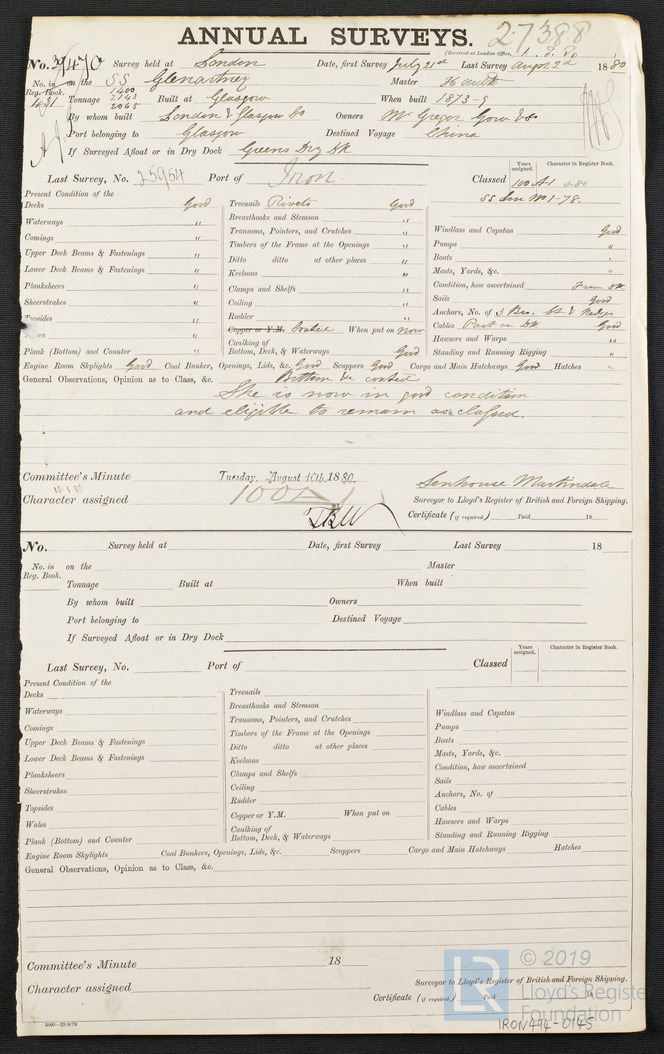 ANNUAL SURVEYS. 27388
(Received at London Office,
No. Survey held at London Date, first Survey July 21st Last Survey Augst 2d 1880
No. in Reg. Book. 1431 on the SS Glenartney Master
1400
Tonnage 2143 Built at Glasgow When built 1873-9
2065
By whom built London & Glasgow Co Owners McGregor Gow & Co
Port belonging to Glasgow Destined Voyage China
If Surveyed Afloat or in Dry Dock Greens Dry Dk
Years assigned. Character in Register Book.
Last Survey, No. 25954 Port of Iron Classed 100 A1 5.80
SS Lon No 1-78.
Present Condition of the
Decks Good
Waterways "
Comings "
Upper Deck Beams & Fastenings "
Lower Deck Beams & Fastenings "
Planksheers "
Sheerstrakes "
Topsides "
Wales "
Plank (Bottom) and Counter "
Treenails Rivets Good
Breasthooks and Stemson "
Transoms, Pointers, and Crutches "
Timbers of the Frame at the Openings "
Ditto ditto at other places "
Keelsons "
Clamps and Shelfs "
Ceiling "
Rudder "
Copper or Y.M. Coated When put on now
Caulking of
Bottom, Deck, & Waterways Good
Windlass and Capstan Good
Pumps "
Boats "
Masts, Yards, &c. "
Condition, how ascertained From Dk
Sails Good
Anchors, No. of 3 Brs. St & Kedges
Cables Part on Dk Good
Hawsers and Warps "
Standing and Running Rigging "
Engine Room Skylights Good Coal Bunkers, Openings, Lids, &c. Good Scuppers Good Cargo and Main Hatchways Good Hatches "
General Observations, Opinion as to Class, &c. Bottom &c coated
She is now in good condition
and eligible to remain as classed.
Committee's Minute Tuesday, August 10th, 1880.
10.8.80
Character assigned 100A1
Senhouse Martindale
Surveyor to Lloyd's Register of British and Foreign Shipping.
Certificate (if required) Paid 18
No. Survey held at Date, first Survey Last Survey 18
No. in Reg. Book. on the Master
Tonnage Built at When built
By whom built Owners
Port belonging to Destined Voyage
If Surveyed Afloat or in Dry Dock
Years assigned. Character in Register Book.
Last Survey, No. Port of Classed
Present Condition of the
Decks
Waterways
Comings
Upper Deck Beams & Fastenings
Lower Deck Beams & Fastenings
Planksheers
Sheerstrakes
Topsides
Wales
Plank (Bottom) and Counter
Treenails
Breasthooks and Stemson
Transoms, Pointers, and Crutches
Timbers of the Frame at the Openings
Ditto ditto at other places
Keelsons
Clamps and Shelfs
Ceiling
Rudder
Copper or Y.M. When put on
Caulking of
Bottom, Deck, & Waterways
Windlass and Capstan
Pumps
Boats
Masts, Yards, &c.
Condition, how ascertained
Sails
Anchors, No. of
Cables
Hawsers and Warps
Standing and Running Rigging
Engine Room Skylights Coal Bunkers, Openings, Lids, &c. Scuppers Cargo and Main Hatchways Hatches
General Observations, Opinion as to Class, &c.
Committee's Minute 18
Character assigned
Surveyor to Lloyd's Register of British and Foreign Shipping.
Certificate (if required) Paid 18
LR © 2019
Lloyd's Register
Foundation
IRON494-0145